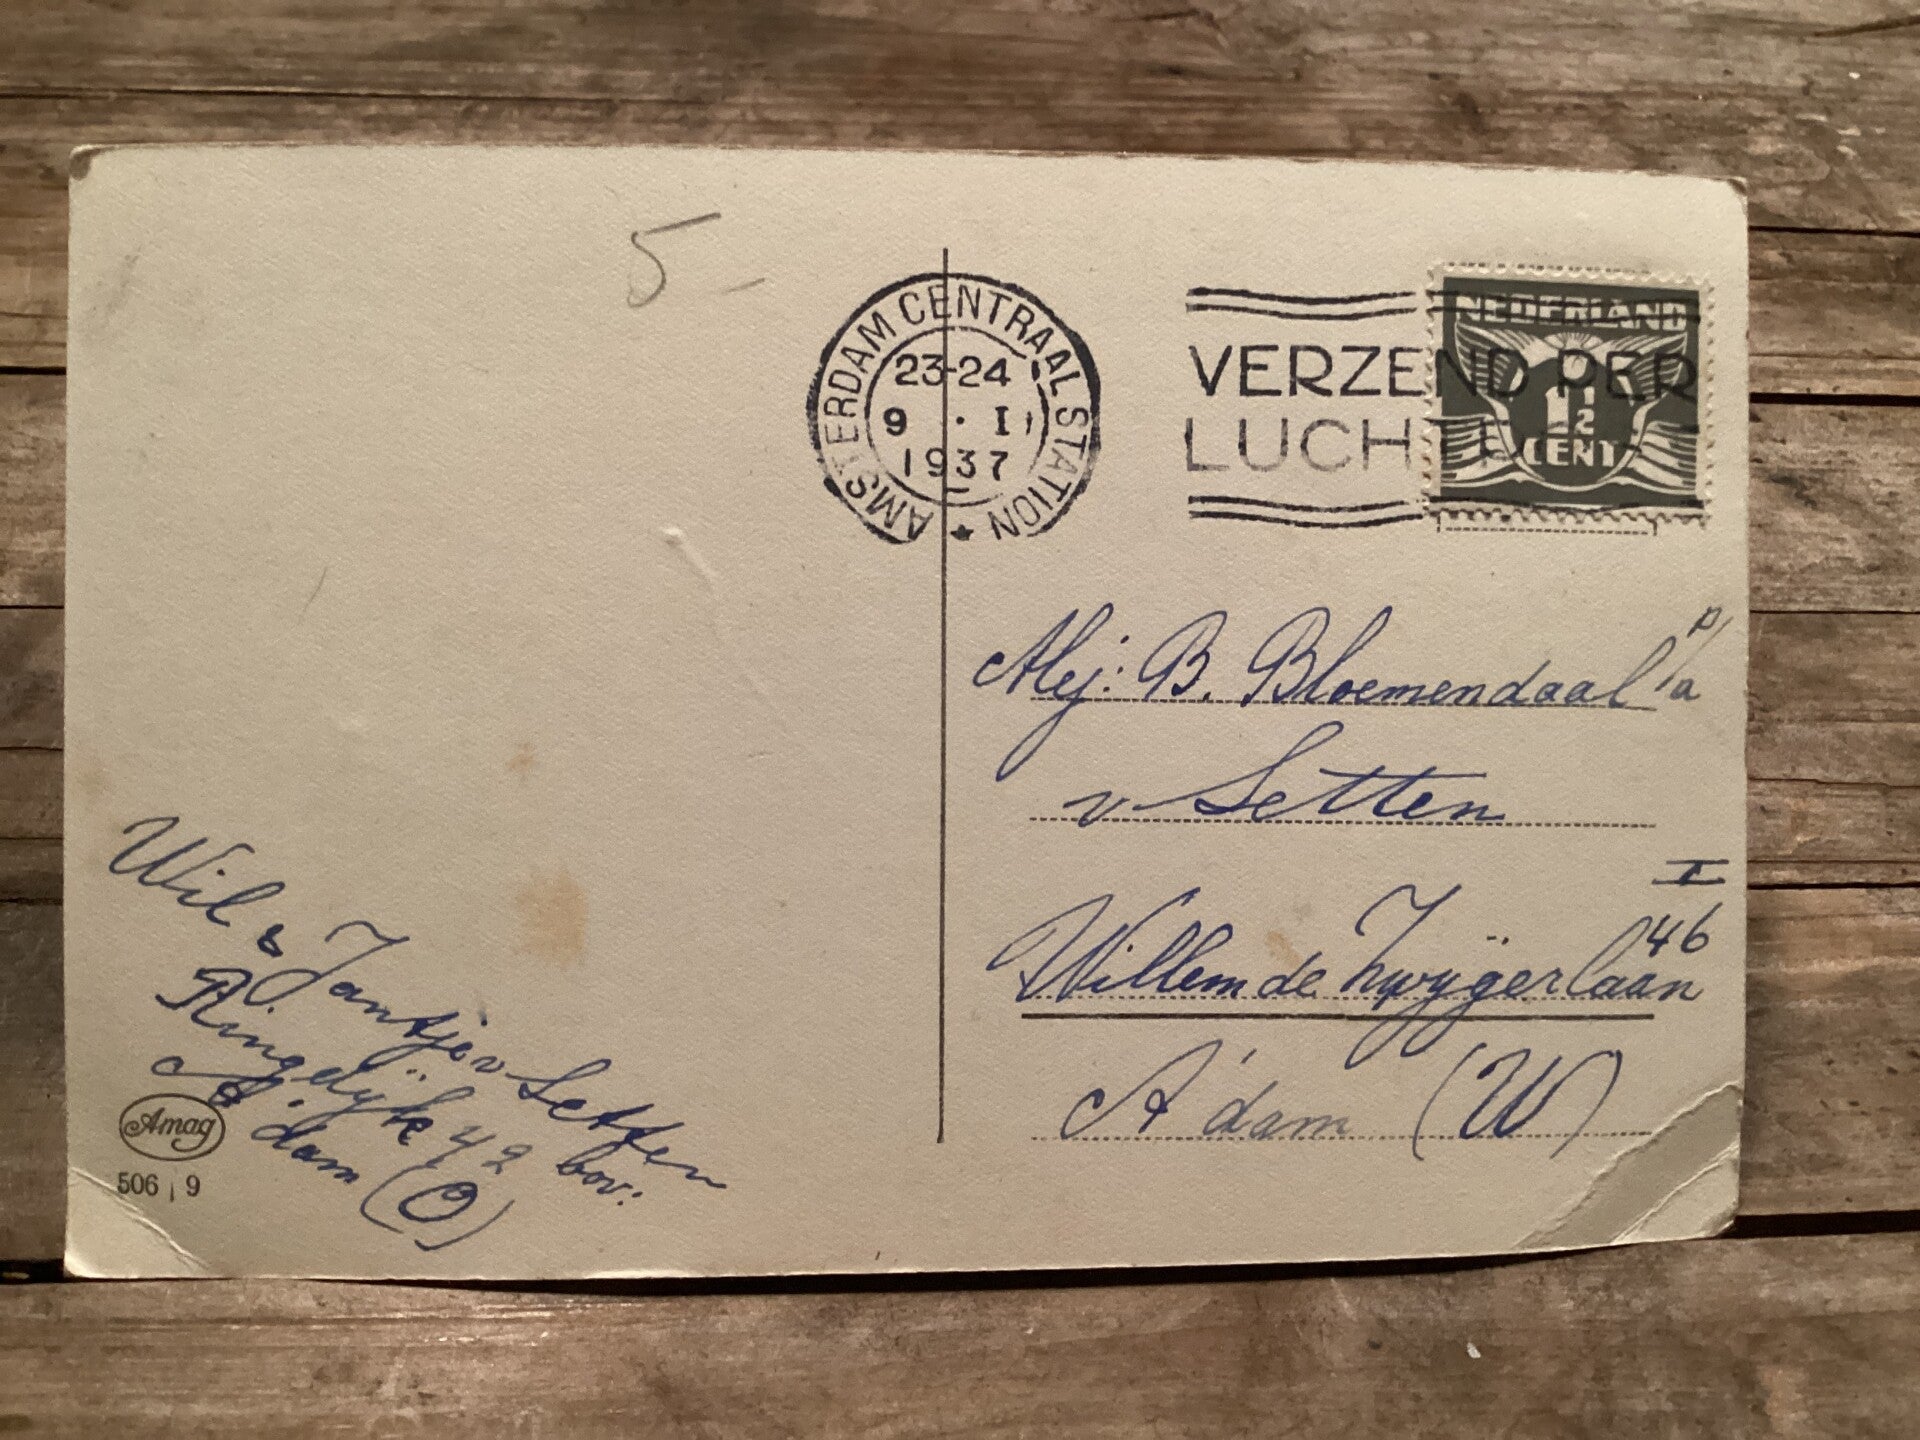 5-
AMSTERDAM CENTRAAL STATION
23-24
9 · I
1937
VERZEND PER
LUCHT
NEDERLAND
1 1/2
CENT
Mej: B. Bloemendaal p/a
v Setten
I
Willem de Zwijgerlaan 46
A'dam (W)
Wil & Jantje v Setten
Ringdijk 42 bov:
A'dam (O)
Amag
506 9